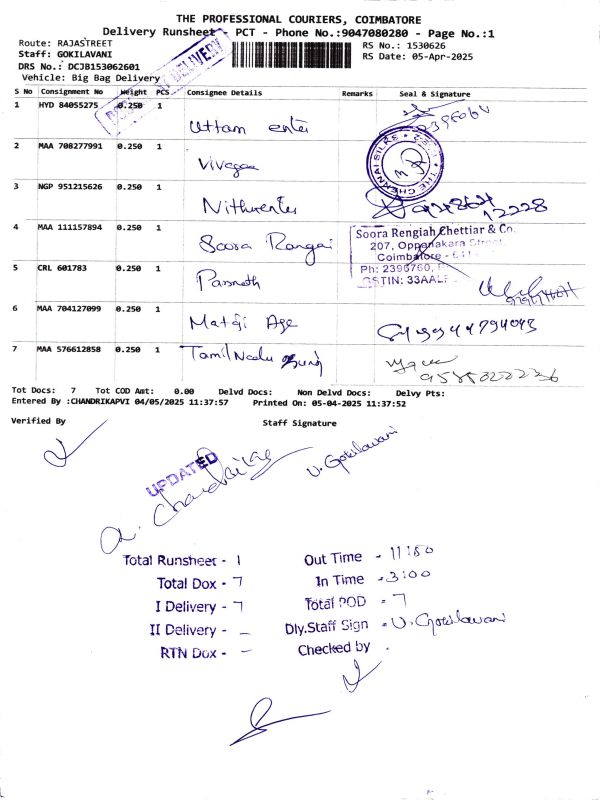 THE PROFESSIONAL COURIERS, COIMBATORE
Delivery Runsheet - PCT - Phone No.:9047080280 - Page No.:1
Route: RAJASTREET
RS No.: 1530626
Staff: GOKILAVANI
RS Date: 05-Apr-2025
DRS No.: DCJB153062601
Vehicle: Big Bag Delivery
DELIVERY
S No Consignment No Weight PCS Consignee Details Remarks Seal & Signature
1 HYD 84055275 0.250 1 Uttam enter
2 MAA 708277991 0.250 1 Vivagaa
THE CHENNAI SILKS
3 NGP 951215626 0.250 1 Nithrenter
12228
4 MAA 111157894 0.250 1 Soora Rangai
Soora Rengiah Chettiar & Co.
207, Oppanakara Street,
Coimbatore - 641
Ph: 2396760,
GSTIN: 33AALF
5 CRL 601783 0.250 1
6 MAA 704127099 0.250 1 Mataji Age
7 MAA 576612858 0.250 1 Tamil Nadu
Tot Docs: 7 Tot COD Amt: 0.00 Delvd Docs: Non Delvd Docs: Delvy Pts:
Entered By :CHANDRIKAPVI 04/05/2025 11:37:57 Printed On: 05-04-2025 11:37:52
Verified By Staff Signature
UPDATED
V. Gokilavani
Total Runsheet - 1 Out Time - 11:50
Total Dox - 7 In Time - 3:00
I Delivery - 7 Total POD - 7
II Delivery - – Dly.Staff Sign - V. Gokilavani
RTN Dox - – Checked by -